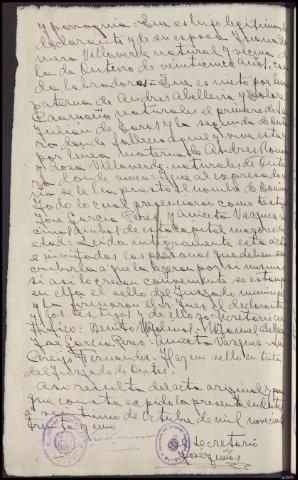 y parroquia= Que es hijo legitimo del
declarante y de su esposa Juana Ro
mero Villaverde natural y vecina
la de Outeiro de veinticinco años,
labradora= Que es nieto por linea
paterna de Andres Abelleira y Dolores
Caamaño naturales el primero de San
Julian de Laros y la segunda de Outei
ro donde fallecio aquel y vive esta y
por linea materna de Andres Romero
y Rosa Villaverde naturales de Outei
ro donde viven= y que al expresado
niño se le ha puesto el nombre de Domin
go todo lo cual presenciaron como testigos
Jose Garcia Perez y Aniceto Vazquez ve
cinos ambos de esta capital mayores de
edad= Leida integramente esta acta
e invitadas las personas que deben sus
cribirla a que la leyeran por si mismas
si asi lo creian conveniente se estampo
en ella el sello del Juzgado munici
pal y la firmaron el Sr Juez el declarante
y los testigos y de ello yo Secretario cer
tifico= Benito Molinos= Manuel Abelleira
Jose Garcia Perez= Aniceto Vazquez=
Fernandez= Hay un sello en tinta
del Juzgado de Outes=
Asi resulta del acta original y para
que conste expido la presente en Outes
a veintiuno de octubre de mil novecientos
treinta y uno
El Secretario